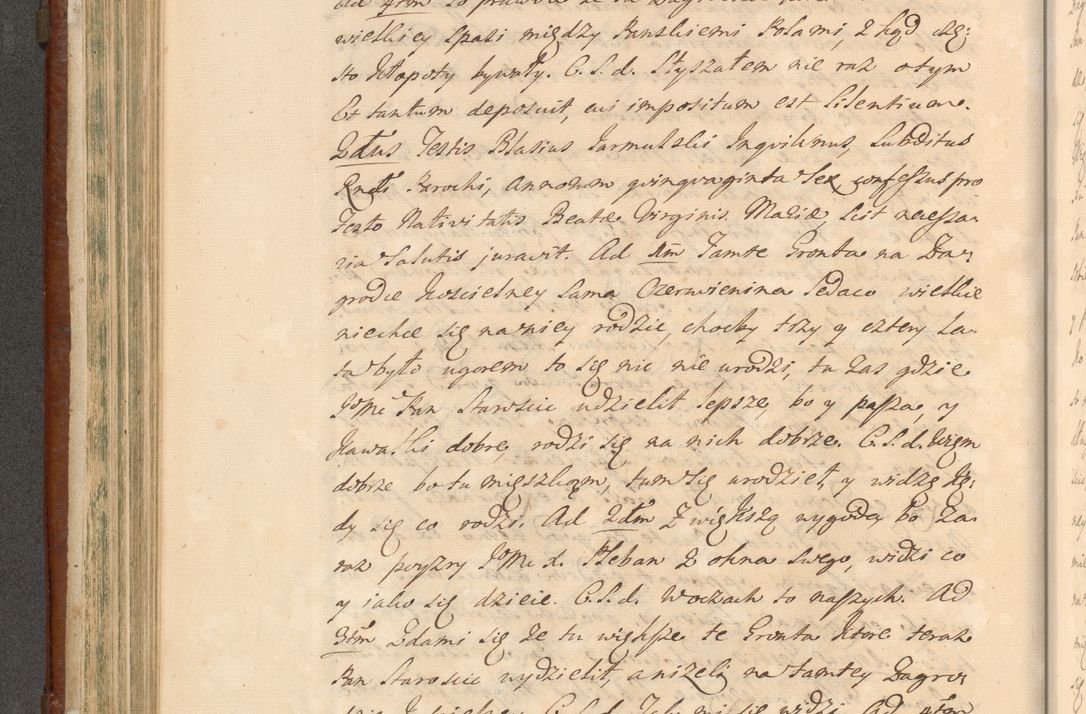 wielkiey spasi między Panskiemi Polami, z kąd czę:
sto kłopoty bywały. C. S. d. Słyszałem nie raz o tym
Et tantum deposuit, eui impositum est Silentium.
2dus Testis Blasius Jarmulski Inqvilinus, Subditus
Rndi Parochi, Annorum qvinqvaginta Sex confessus pro
Festo Nativitatis Beatæ Virginis Mariæ, scit necessa-
ria Salutis juravit. Ad 1m Tamte Gronta na Za-
grodce Koscielney sama Czerwienina Ledaco wielkie
niechce się na niey rodzic, chocby trzy y cztery La-
ta było ugorem to się nic nie urodzi, tu zas gdzie
JoMc Pan Staroscic udzielił lepsze, bo y pasza, y
Kawałki dobre, rodzi się na nich dobrze. C. S. d. Wiem
dobrze bo tu mięszkąm, tum się urodził, y widzę kę:
dy się co rodzi. Ad 2dm Z większą wygodą bo za-
raz poyzry JoMc X. Pleban z okna swego, widzi co
y iako się dzieie. C. S. d. W oczach to naszych. Ad
3tm Zdami się że tu większe te Gronta ktore teraz
Pan Staroscic wydzielił, aniżeli na tamtey Zagro-